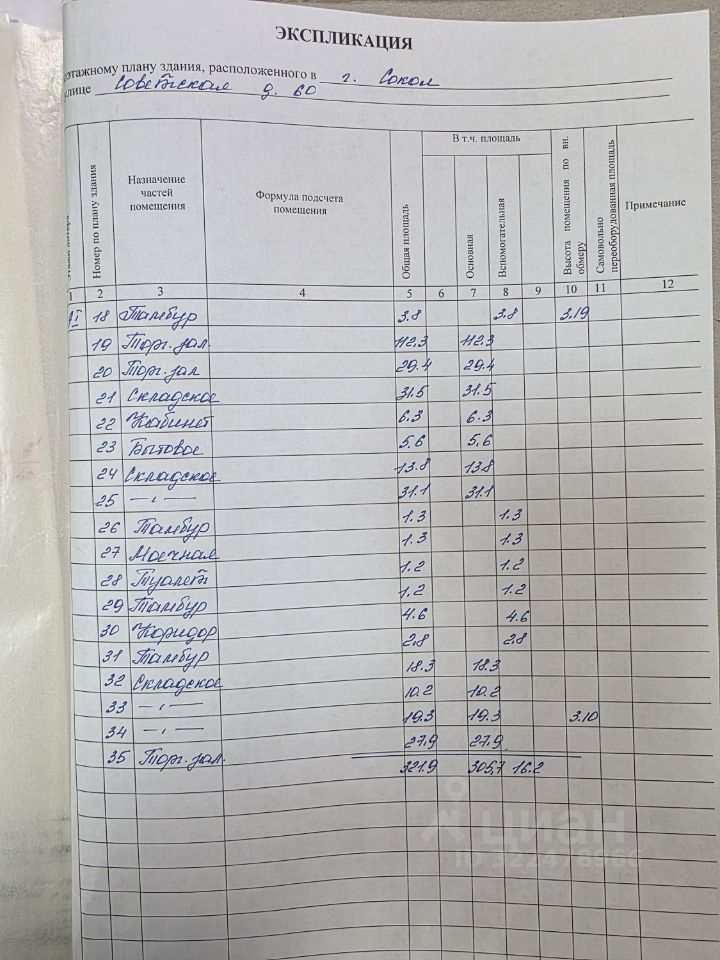 ЭКСПЛИКАЦИЯ
оэтажному плану здания, расположенного в г. Сокол
улице Советская д. 60
Номер по плану здания
Назначение частей помещения
Формула подсчета помещения
Общая площадь
В т.ч. площадь
Основная
Вспомогательная
Высота помещения по вн. обмеру
Самовольно переоборудованная площадь
Примечание
1 2 3 4 5 6 7 8 9 10 11 12
18 Тамбур 3.8 3.8 3.19
19 Торг. зал. 112.3 112.3
20 Торг. зал 29.4 29.4
21 Складское 31.5 31.5
22 Кабинет 6.3 6.3
23 Бытовое 5.6 5.6
24 Складское 13.8 13.8
25 —„— 31.1 31.1
26 Тамбур 1.3 1.3
27 Моечная 1.3 1.3
28 Туалет 1.2 1.2
29 Тамбур 1.2 1.2
30 Коридор 4.6 4.6
31 Тамбур 2.8 2.8
32 Складское 18.3 18.3
33 —„— 10.2 10.2
34 —„— 19.3 19.3 3.10
35 Торг. зал. 27.9 27.9
321.9 305,7 16.2
циан